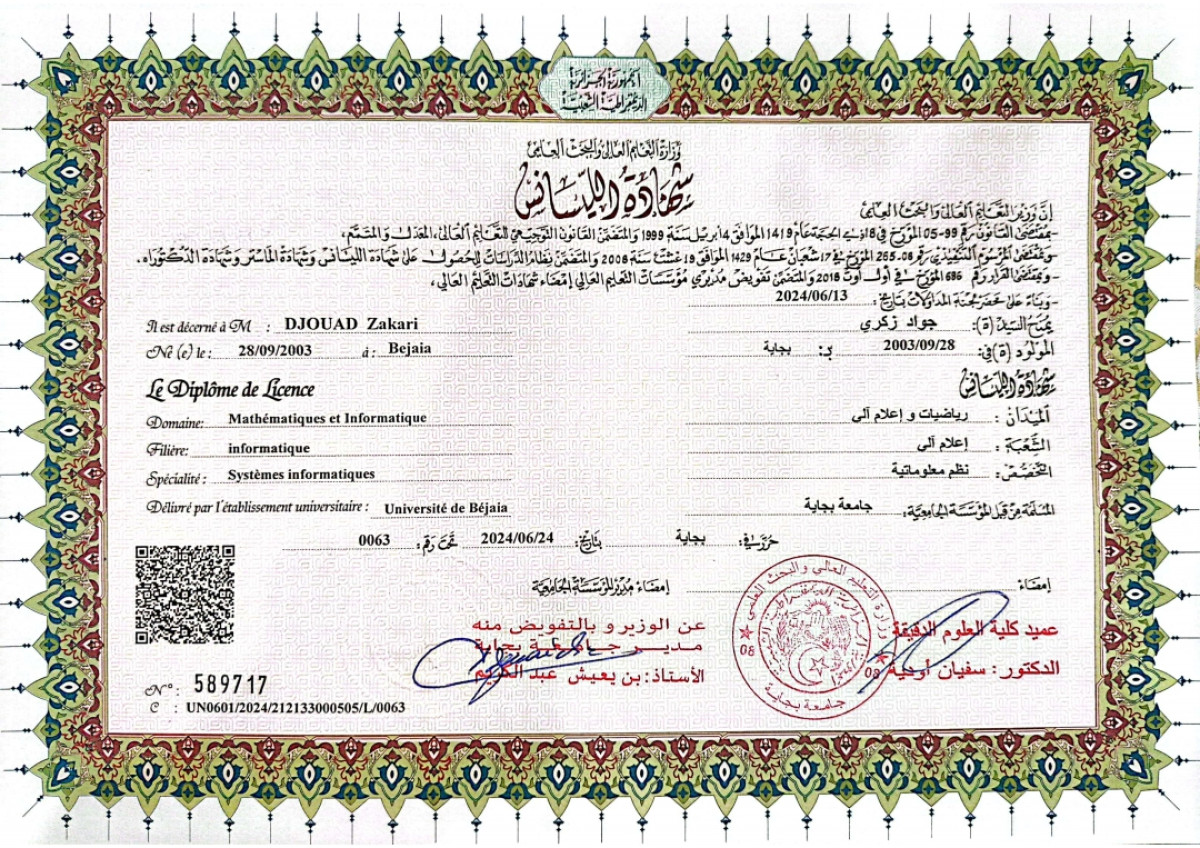 الجمهورية الجزائرية
الديمقراطية الشعبية
وزارة التعليم العالي والبحث العلمي
شهادة الليسانس
إن وزير التعليم العالي والبحث العلمي
بمقتضى القانون رقم 99-05 المؤرخ في 18 ذي الحجة عام 1419 الموافق 4 أبريل سنة 1999 والمتضمن القانون التوجيهي للتعليم العالي، المعدل والمتمم،
وبمقتضى المرسوم التنفيذي رقم 08-265 المؤرخ في 17 شعبان عام 1429 الموافق 19 غشت سنة 2008 والمتضمن نظام الدراسات للحصول على شهادة الليسانس وشهادة الماستر وشهادة الدكتوراه.
وبمقتضى القرار رقم 696 المؤرخ في أول أوت 2018 والمتضمن تفويض مديري مؤسسات التعليم العالي إمضاء شهادات التعليم العالي،
وبناء على محضر لجنة المداولات بتاريخ: 2024/06/13
Il est décerné à M : DJOUAD Zakari
يمنح السيد (ة): جواد زكري
Né (e) le : 28/09/2003 à : Bejaia
المولود (ة) في: 2003/09/28 بـ: بجاية
Le Diplôme de Licence
شهادة الليسانس
Domaine: Mathématiques et Informatique
الميدان : رياضيات و إعلام آلي
Filière: informatique
الشعبة : إعلام آلي
Spécialité : Systèmes informatiques
التخصص : نظم معلوماتية
Délivré par l'établissement universitaire : Université de Béjaia
المسلمة من قبل المؤسسة الجامعية: جامعة بجاية
حرر في: بجاية بتاريخ: 2024/06/24 تحت رقم: 0063
إمضاء
إمضاء مدير المؤسسة الجامعية
عميد كلية العلوم الدقيقة
الدكتور: سفيان أودية
عن الوزير و بالتفويض منه
مدير جامعة بجاية
الأستاذ: بن يعيش عبد الكريم
وزارة التعليم العالي و البحث العلمي
جامعة بجاية
08
08
N° : 589717
C : UN0601/2024/212133000505/L/0063